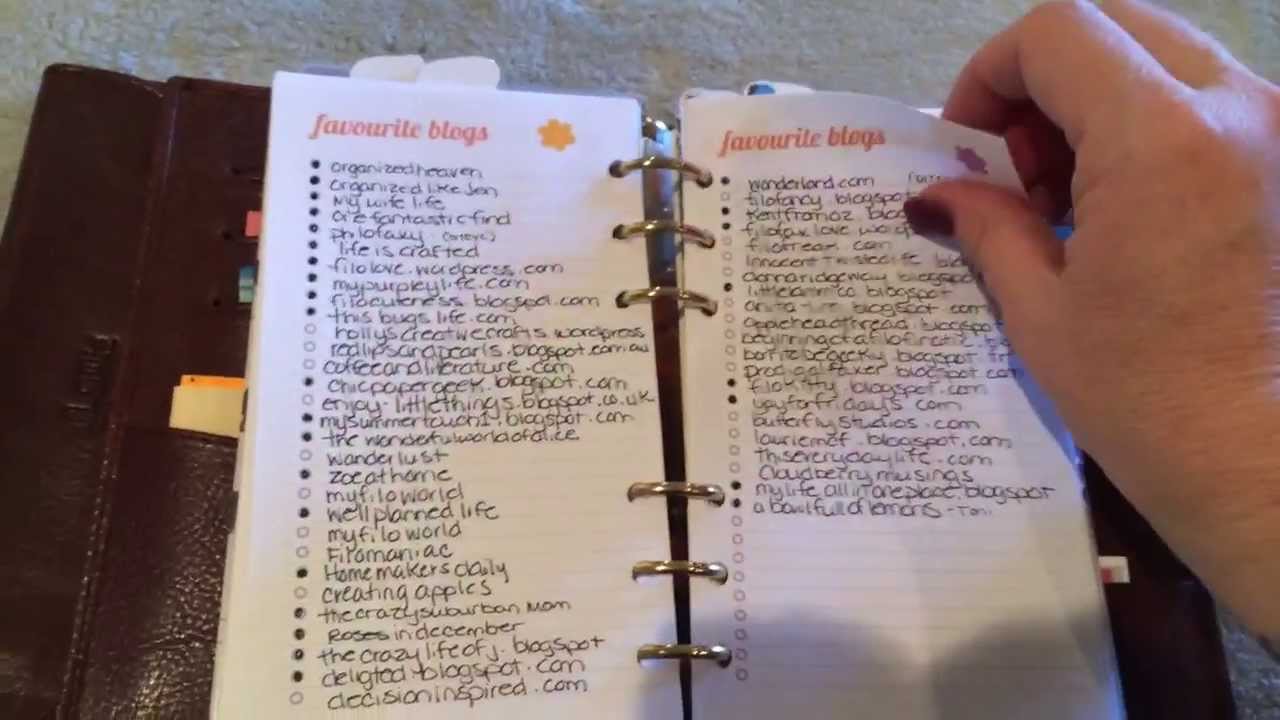 favourite blogs
organizedheaven
organized like Jen
My wife life
are fantastic find
philofaxy
life is crafted
filolove.wordpress.com
mypurpleylife.com
filocuteness.blogspot.com
this bugs life.com
hollyscreativecrafts.wordpress
redlipsandpearls.blogspot.com.au
coffeeandliterature.com
chicpapergeek.blogspot.com
enjoy-littlethings.blogspot.co.uk
mysummertouch1.blogspot.com
the wonderfulworldofalice
wanderlust
zoeathome
myfiloworld
well planned life
myfiloworld
Filomaniac
Homemakersdaily
creating apples
thecrazysuburban Mom
Roses in december
the crazy lifeofj.blogspot
deligted-blogspot.com
decisioninspired.com
favourite blogs
wonderland.com
filofancy.blogspot
Kentfromoz.blog
filofax love word
filofreak.com
Innocent Twistedlife
donnaridgeway blogspo
blogspot
blogspot.com
appleheadthread.blogspot
beginningofafilofinatic.
borntobegeeky blogspot
prodigalfaxer blogspot com
filokitty.blogspot.com
yayforfridays com
butterflystudios.com
lauriemcf.blogspot.com
thiseverydaylife.com
Cloudberrymusings
mylife all in one place.blogspot
a bowl full of lemons - Toni